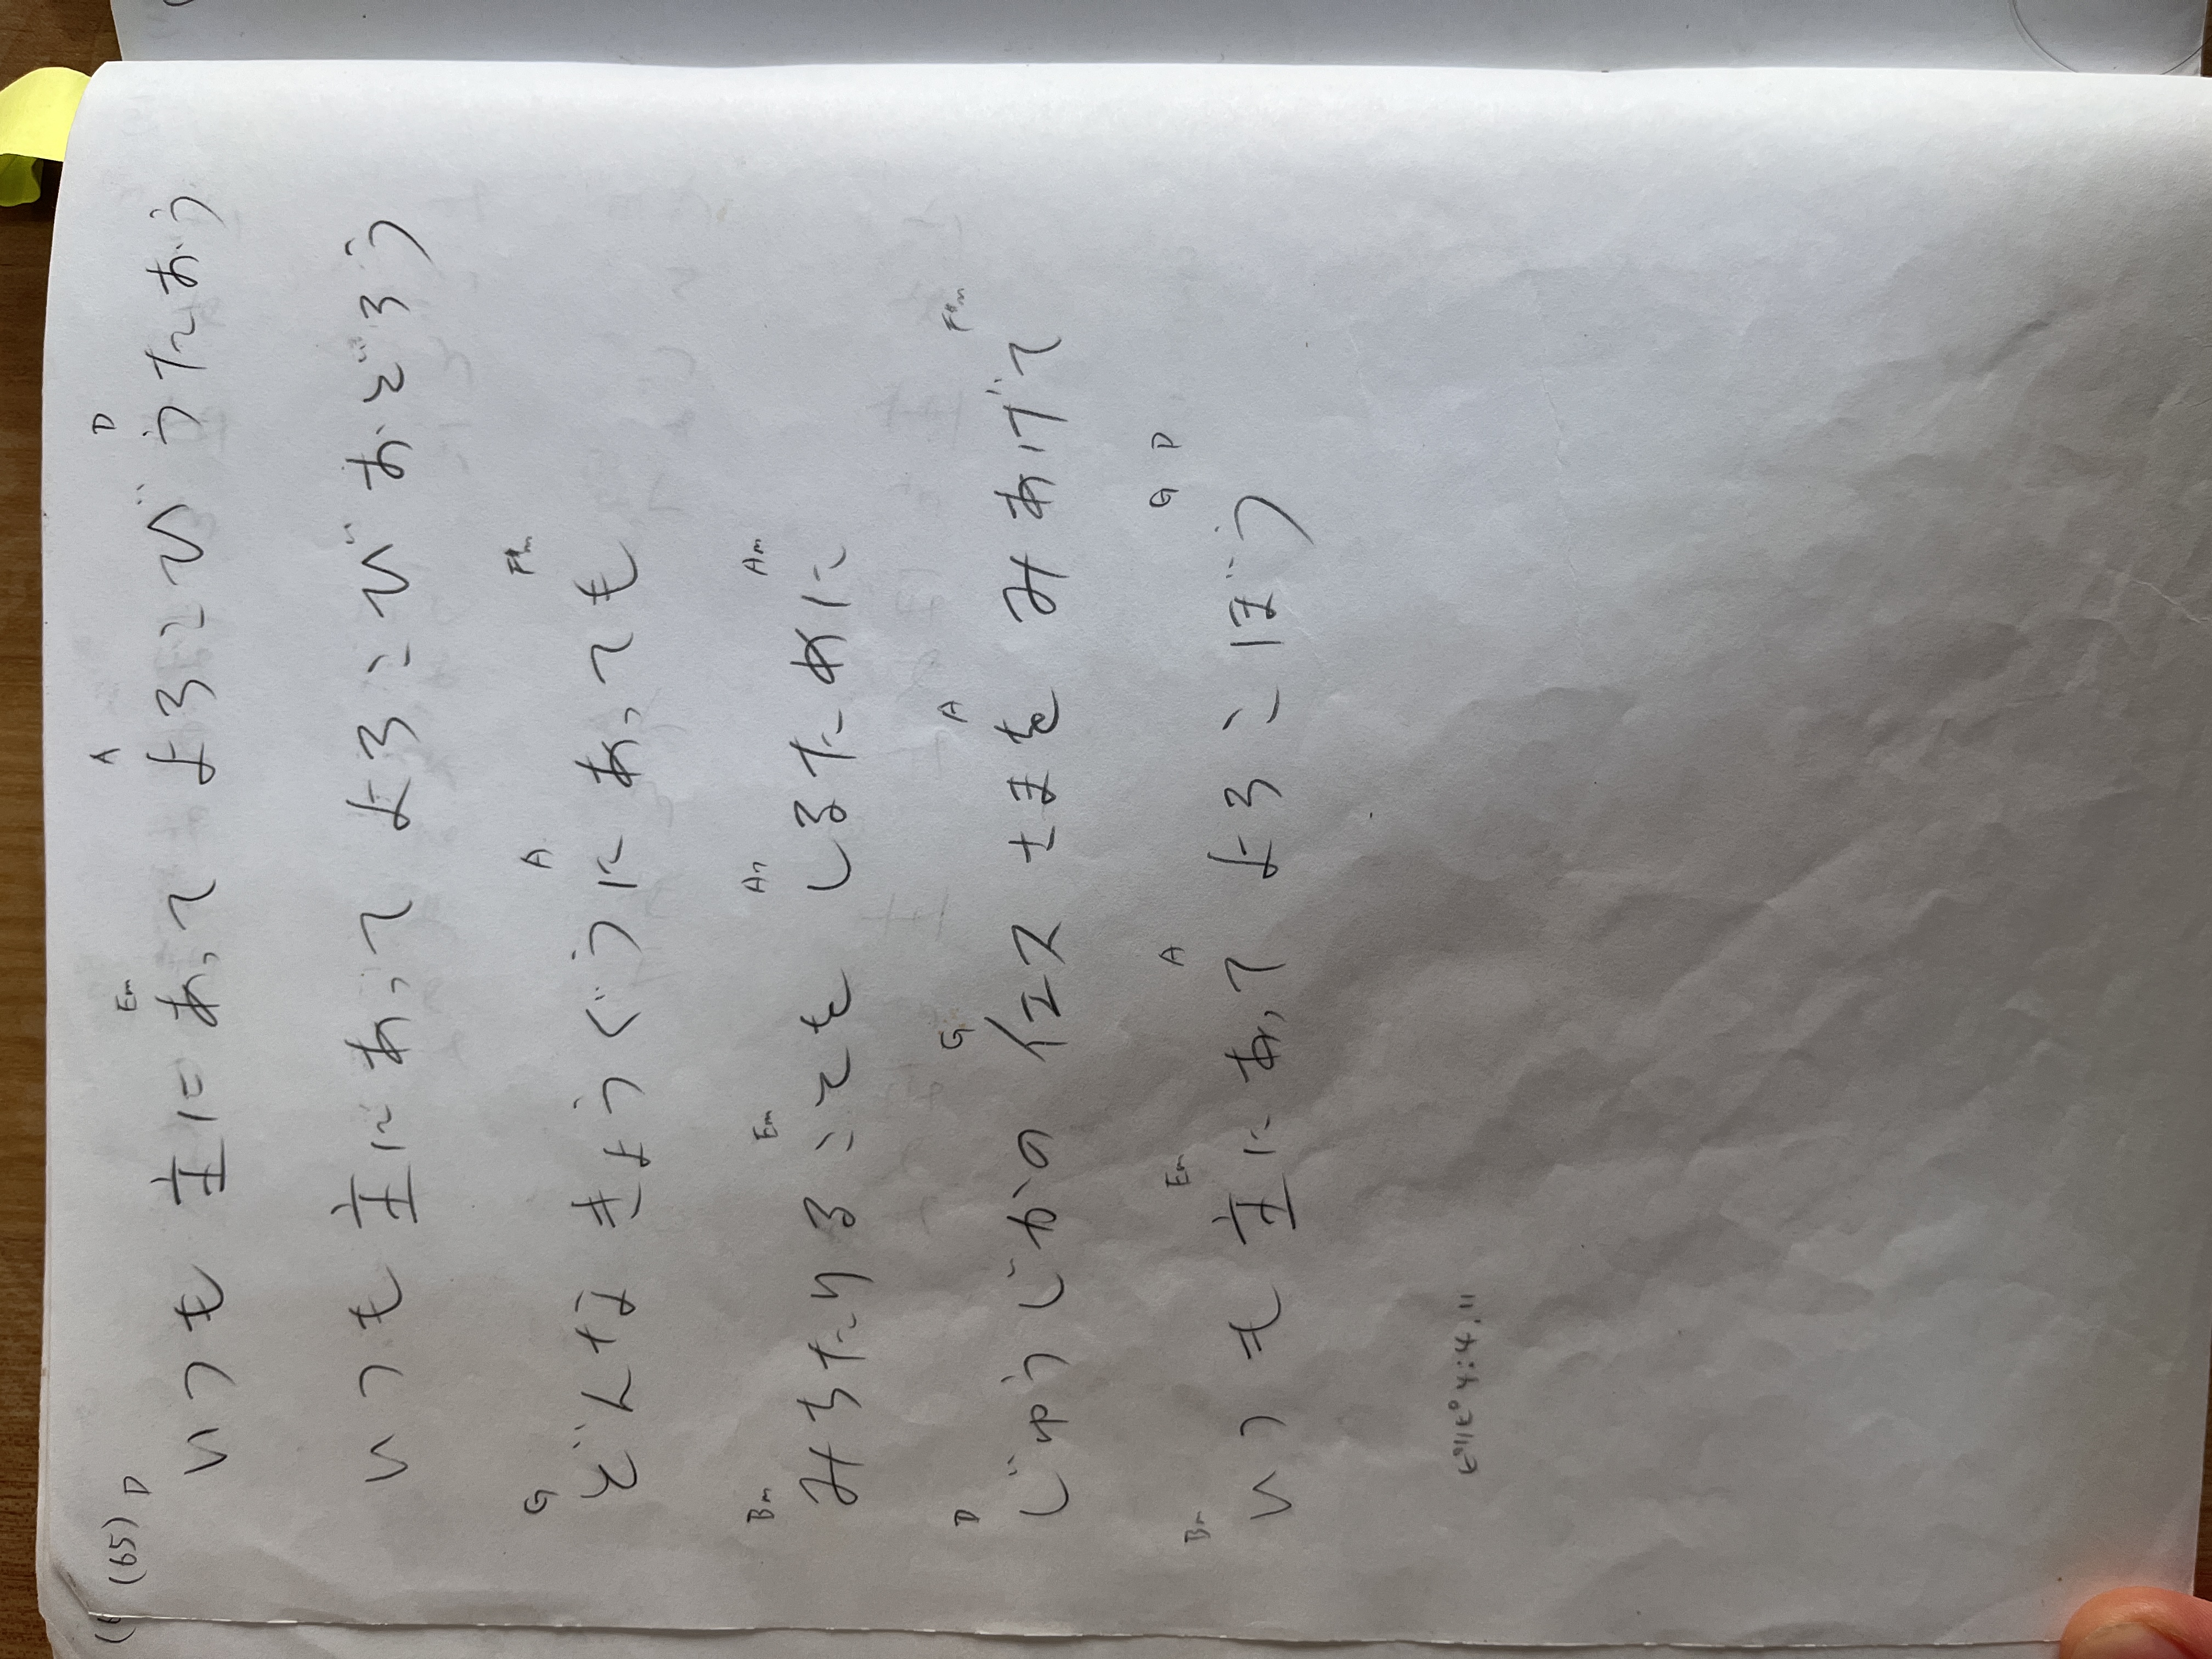 (65) D Em A D
いつも 主に あって よろこび うたおう
いつも 主に あって よろこび おどろう
G A F#m
どんな きょうぐうに あっても
Bm Em Am Am
みちたりることを しるために
D G A F#m
じゅうじかの イエスさまを みあげて
Bm Em A G D
いつも 主に あって よろこぼう
ピリピ 4:4.11